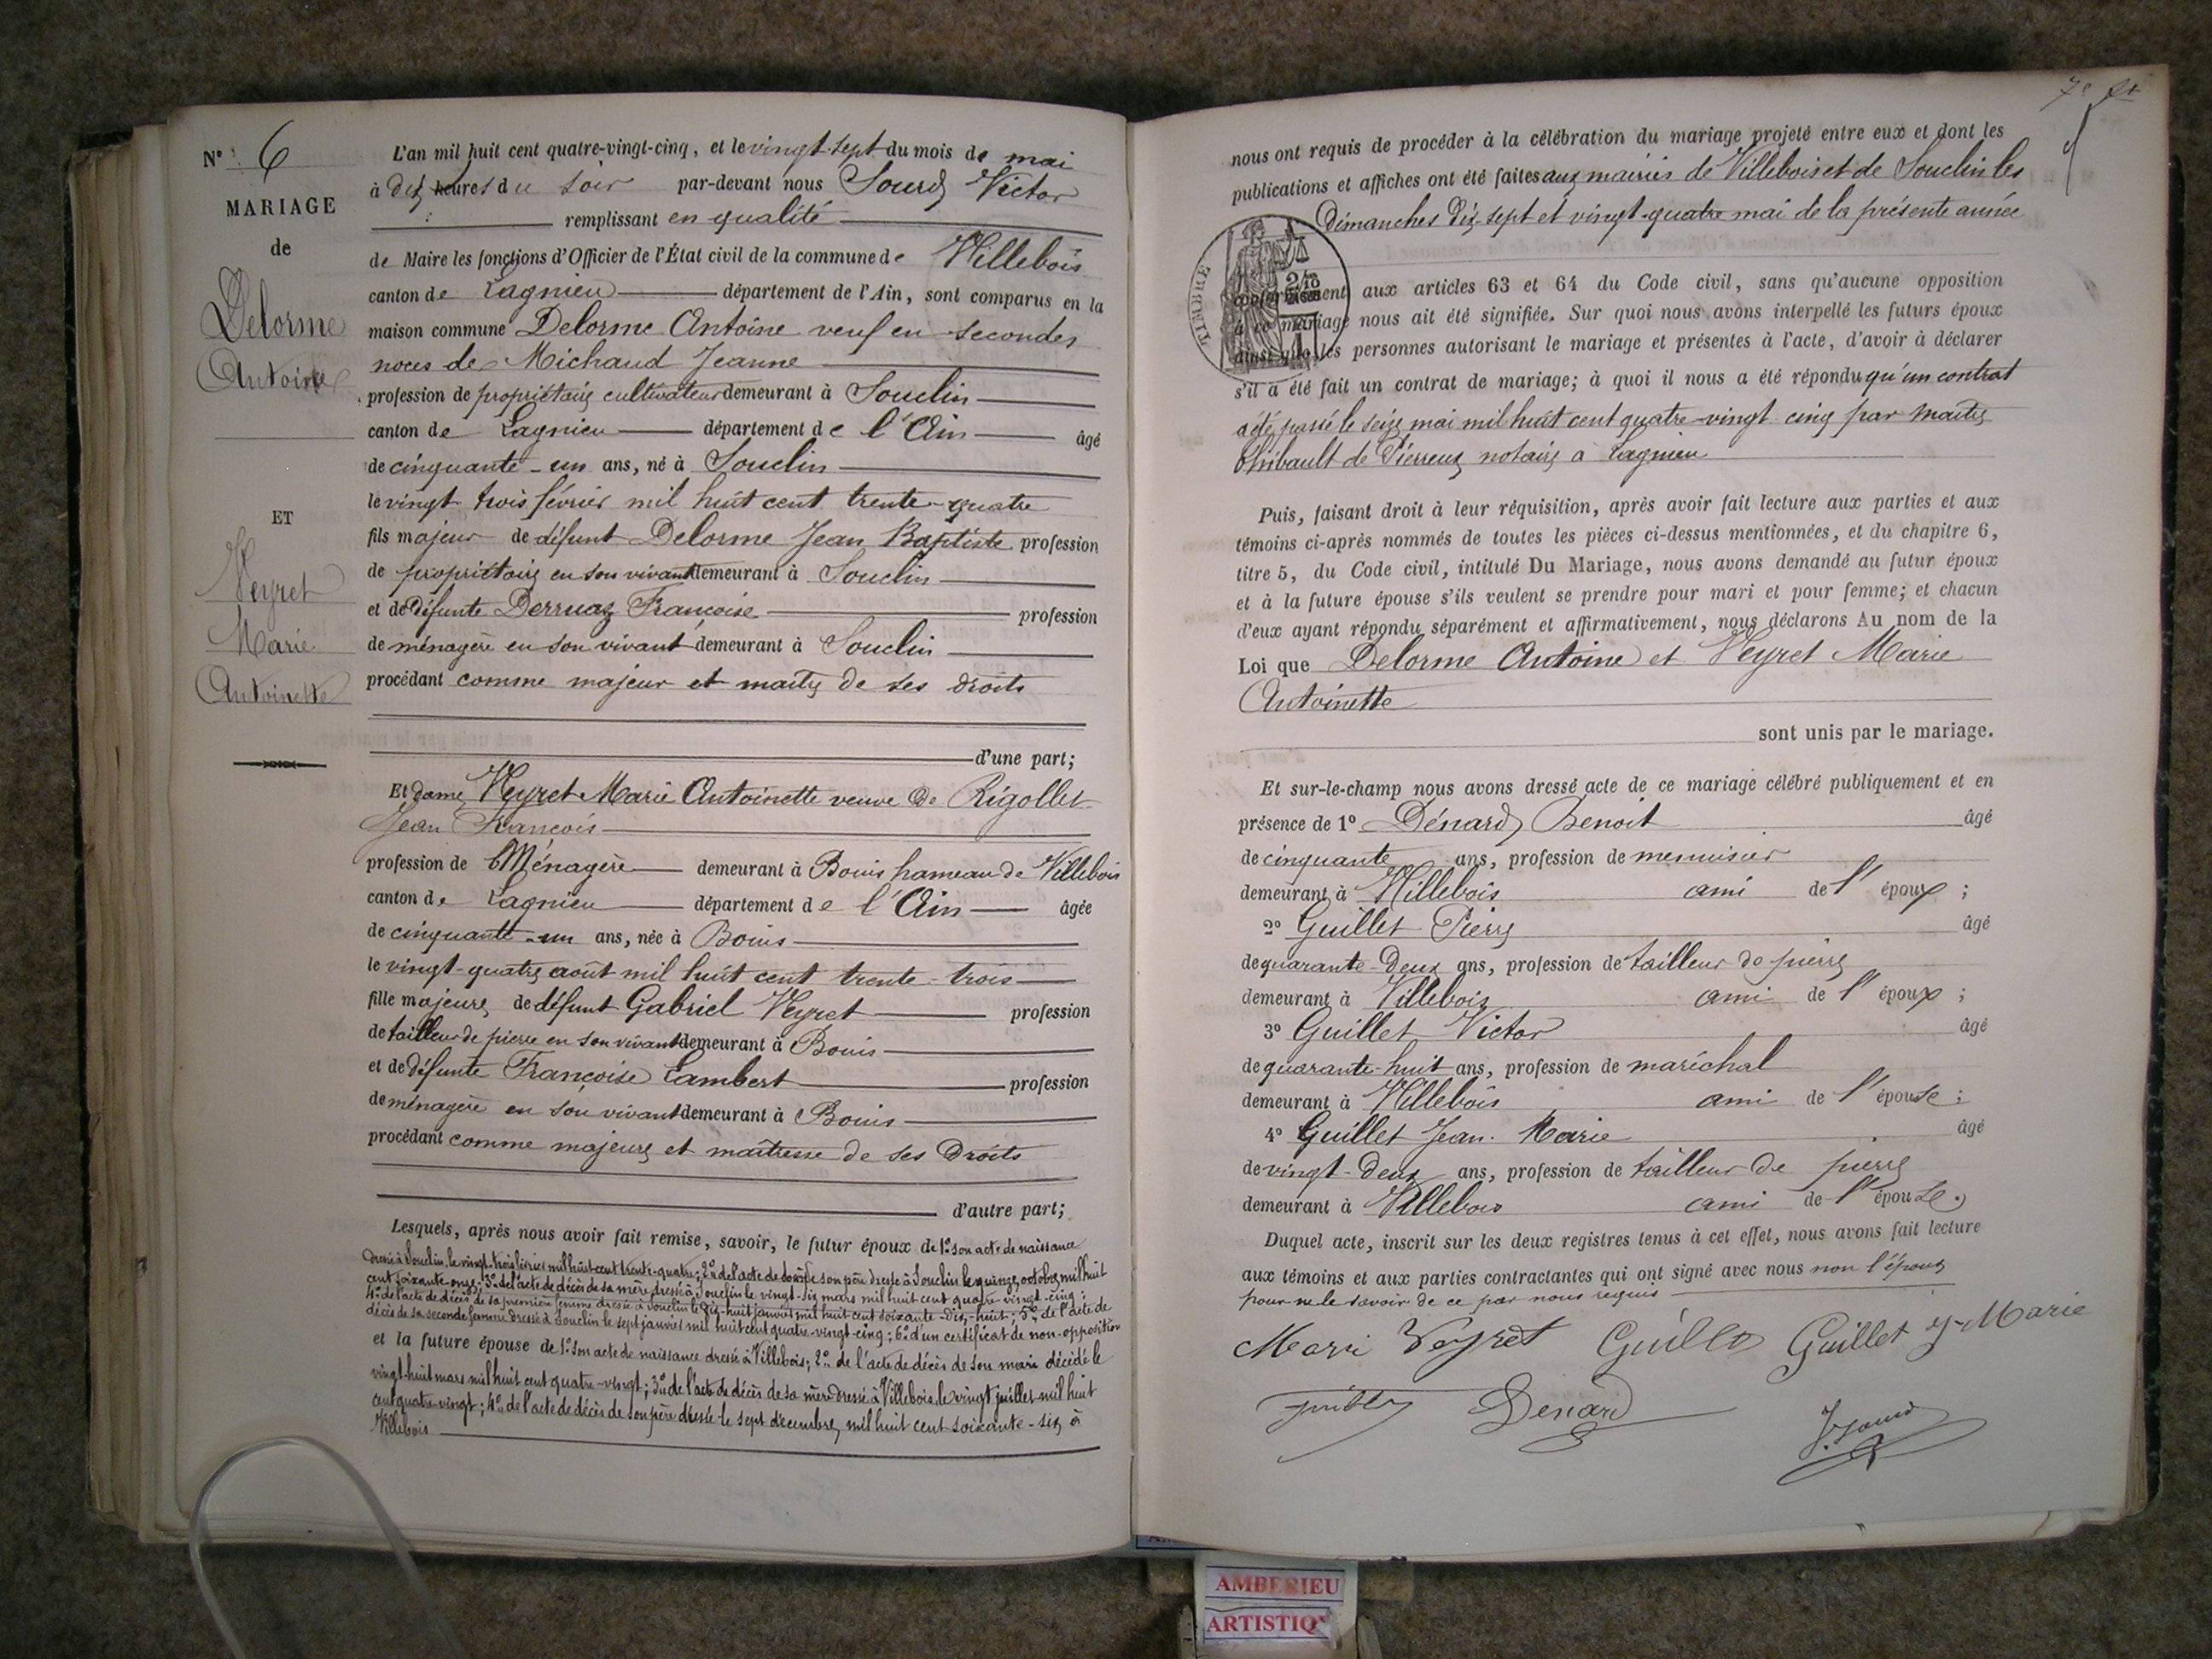 N° 6
MARIAGE
de
Delorme
Antoine
ET
Veyret
Marie
Antoinette
L'an mil huit cent quatre-vingt-cinq, et le vingt-sept du mois de mai
à dix heures du soir par-devant nous Sourd Victor
remplissant en qualité
de Maire les fonctions d'Officier de l'État civil de la commune de Villebois
canton de Lagnieu département de l'Ain, sont comparus en la
maison commune Delorme Antoine veuf en secondes
noces de Michaud Jeanne
profession de propriétaire cultivateur demeurant à Souclin
canton de Lagnieu département de l'Ain âgé
de cinquante-un ans, né à Souclin
le vingt trois février mil huit cent trente-quatre
fils majeur de défunt Delorme Jean Baptiste profession
de propriétaire en son vivant demeurant à Souclin
et de défunte Derruaz Françoise profession
de ménagère en son vivant demeurant à Souclin
procédant comme majeur et maître de ses droits
d'une part;
Et dame Veyret Marie Antoinette veuve de Rigollet
Jean François
profession de Ménagère demeurant à Bouis hameau de Villebois
canton de Lagnieu département de l'Ain âgée
de cinquante-un ans, née à Bouis
le vingt-quatre août mil huit cent trente-trois
fille majeure de défunt Gabriel Veyret profession
de tailleur de pierre en son vivant demeurant à Bouis
et de défunte Françoise Lambert profession
de ménagère en son vivant demeurant à Bouis
procédant comme majeure et maîtresse de ses Droits
d'autre part;
Lesquels, après nous avoir fait remise, savoir, le futur époux de 1° son acte de naissance
dressé à Souclin le vingt-trois février mil huit cent trente-quatre; 2° de l'acte de décès de son père dressé à Souclin le quinze octobre mil huit
cent soixante-onze; 3° de l'acte de décès de sa mère dressé à Souclin le vingt-six mars mil huit cent quatre-vingt-cinq;
4° de l'acte de décès de sa première femme dressé à Souclin le dix-huit janvier mil huit cent soixante-dix-huit; 5° de l'acte de
décès de sa seconde femme dressé à Souclin le sept janvier mil huit cent quatre-vingt-cinq; 6° d'un certificat de non-opposition
et la future épouse de 1° son acte de naissance dressé à Villebois; 2° de l'acte de décès de son mari décédé le
vingt-huit mars mil huit cent quatre-vingt; 3° de l'acte de décès de sa mère dressé à Villebois le vingt juillet mil huit
cent quatre-vingt; 4° de l'acte de décès de son père dressé le sept décembre mil huit cent soixante-six à
Villebois
nous ont requis de procéder à la célébration du mariage projeté entre eux et dont les
publications et affiches ont été faites aux mairies de Villebois et de Souclin les
Dimanches dix sept et vingt-quatre mai de la présente année
TIMBRE
conformément aux articles 63 et 64 du Code civil, sans qu'aucune opposition
à ce mariage nous ait été signifiée. Sur quoi nous avons interpellé les futurs époux
ainsi que les personnes autorisant le mariage et présentes à l'acte, d'avoir à déclarer
s'il a été fait un contrat de mariage; à quoi il nous a été répondu qu'un contrat
a été passé le seize mai mil huit cent quatre-vingt cinq par maître
Thibault de Pierreux notaire à Lagnieu
Puis, faisant droit à leur réquisition, après avoir fait lecture aux parties et aux
témoins ci-après nommés de toutes les pièces ci-dessus mentionnées, et du chapitre 6,
titre 5, du Code civil, intitulé Du Mariage, nous avons demandé au futur époux
et à la future épouse s'ils veulent se prendre pour mari et pour femme; et chacun
d'eux ayant répondu séparément et affirmativement, nous déclarons Au nom de la
Loi que Delorme Antoine et Veyret Marie
Antoinette
sont unis par le mariage.
Et sur-le-champ nous avons dressé acte de ce mariage célébré publiquement et en
présence de 1° Dénard Benoit âgé
de cinquante ans, profession de menuisier
demeurant à Villebois ami de l'époux;
2° Guillet Pierre âgé
de quarante-deux ans, profession de tailleur de pierre
demeurant à Villebois ami de l'époux;
3° Guillet Victor âgé
de quarante-huit ans, profession de maréchal
demeurant à Villebois ami de l'épouse;
4° Guillet Jean-Marie âgé
de vingt-deux ans, profession de tailleur de pierre
demeurant à Villebois ami de l'épouse.
Duquel acte, inscrit sur les deux registres tenus à cet effet, nous avons fait lecture
aux témoins et aux parties contractantes qui ont signé avec nous non l'époux
pour ne le savoir de ce par nous requis
Mari Veyret Guillet Guillet J-Marie
Denard
AMBERIEU
ARTISTIQ